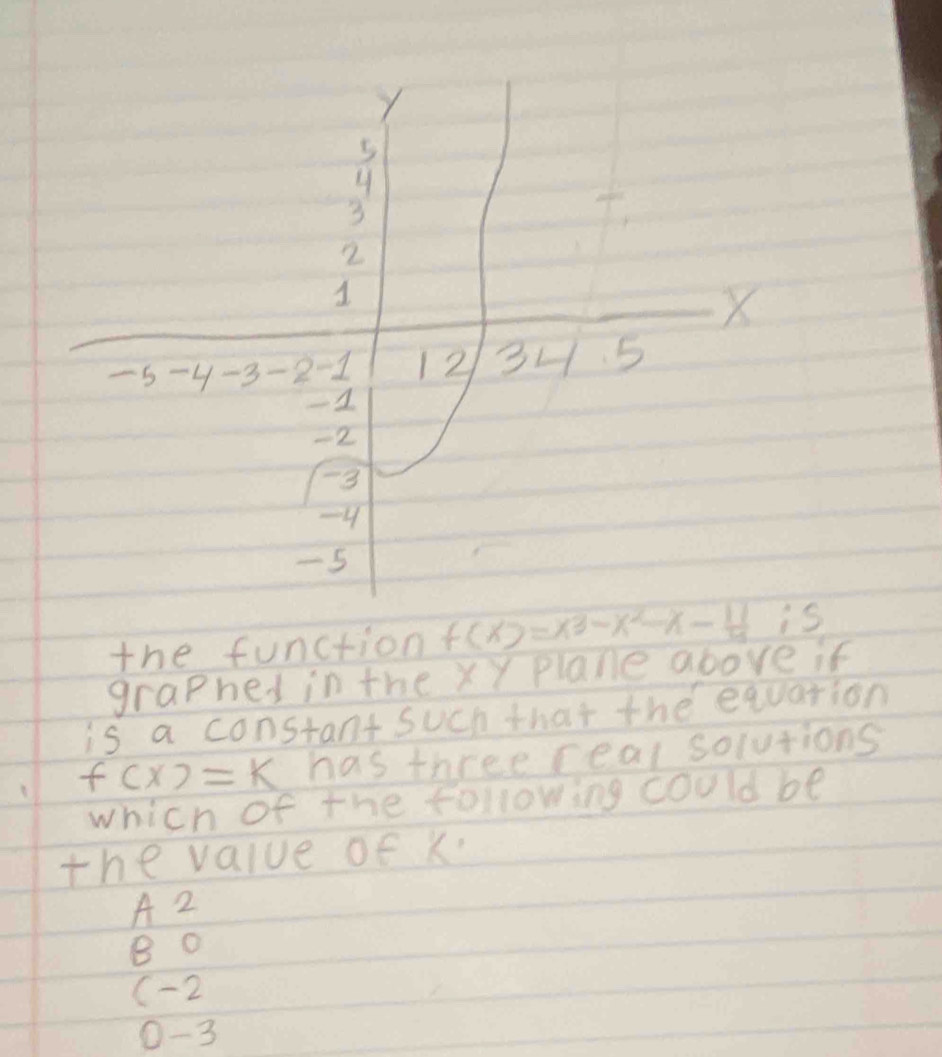 Y
5
4
3
2
1
X
-5 -4 -3 -2 -1 1 2 3 4 .5
-1
-2
-3
-4
-5
the function f(x)=x³-x²-x- is
graphed in the XY plane above if
is a constant such that the equation
f(x)=K has three real solutions
which of the following could be
the value of K.
A 2
B 0
C -2
D -3